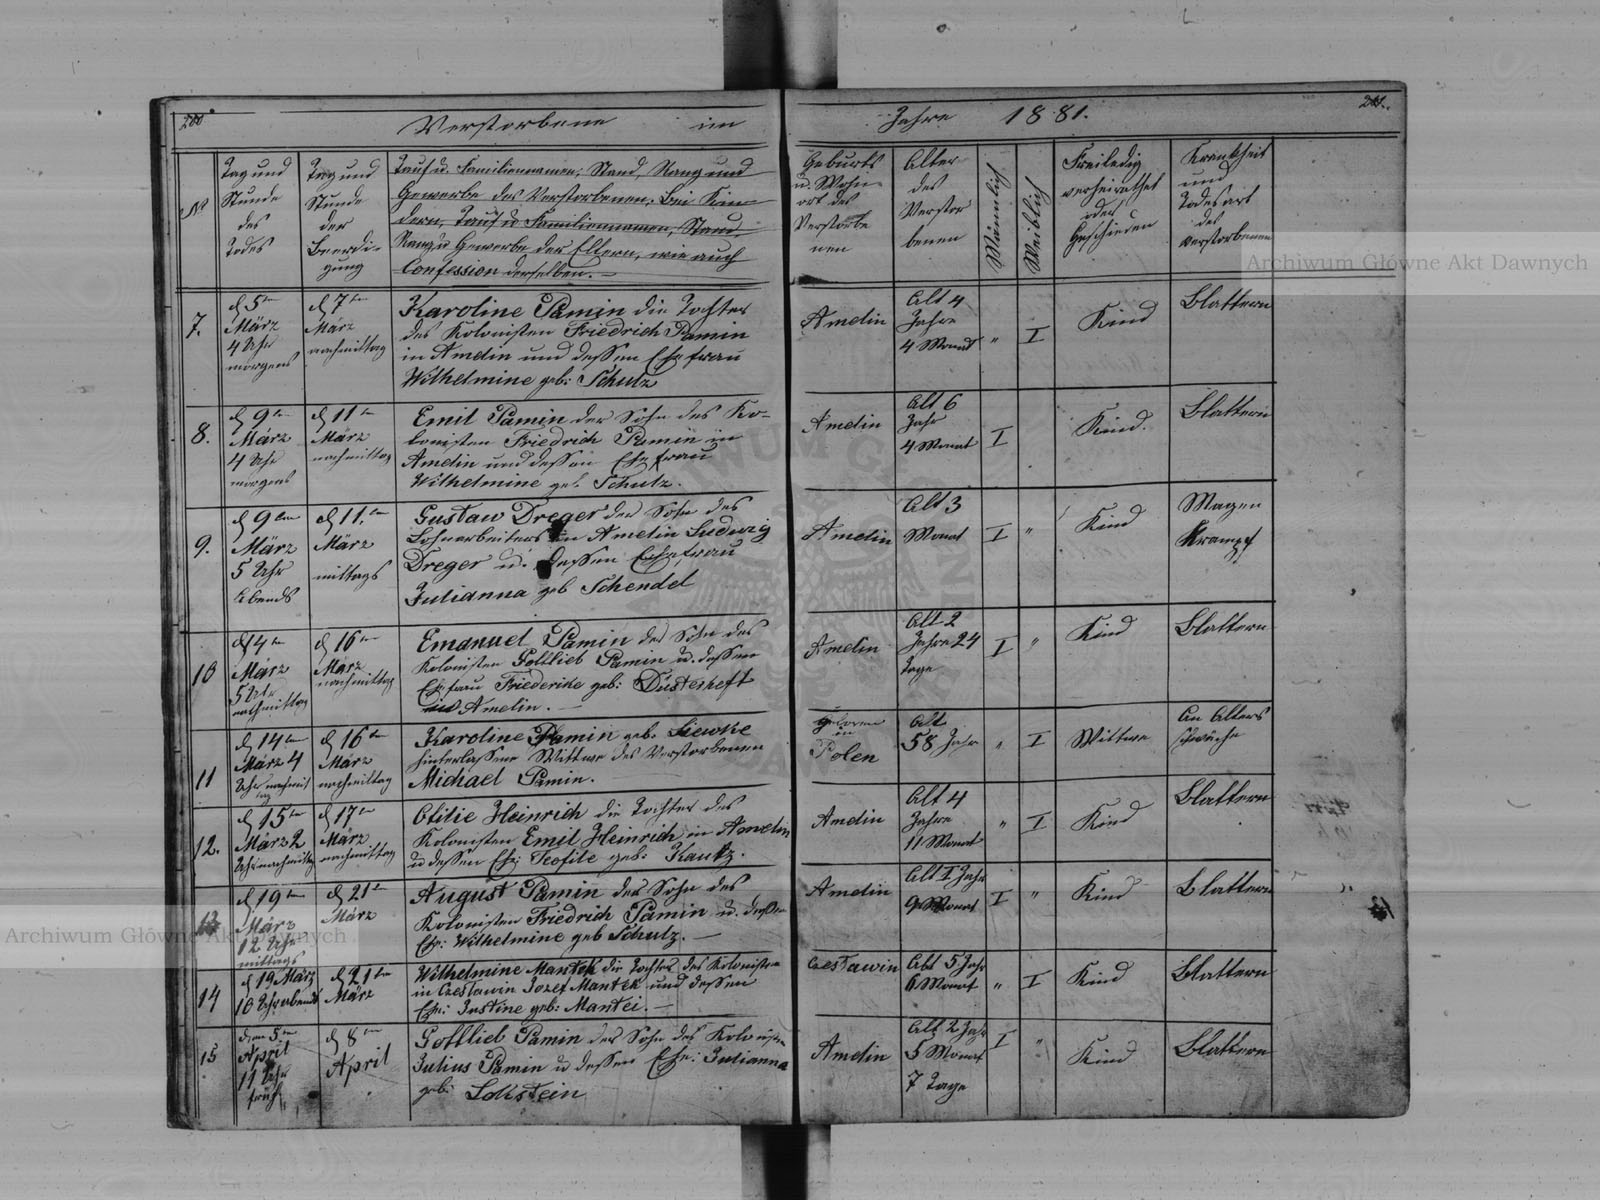 200
Verstorbene im
Jahre 1881.
201.
No
Tag und
Stunde
des
Todes
Tag und
Stunde
der
Beerdi-
gung
Tauf u. Familiennamen, Stand, Rang und
Gewerbe des Verstorbenen; Bei Kin-
dern, Tauf u. Familiennamen, Stand,
Rang u. Gewerbe der Eltern, wie auch
Confession derselben. —
Geburts
u. Wohn-
ort des
Verstorbe
nen
Alter
des
Verstor
benen
Männlich
Weiblich
Freiledig
verheirathet
oder
Geschieden
Krankheit
und
Todesart
des
verstorbenen
7.
d 5ten
März
4 Uhr
morgens
d 7ten
März
nachmittag
Karoline Pamin die Tochter
des Kolonisten Friedrich Pamin
in Amelin und dessen Ehefrau
Wilhelmine geb: Schulz
Amelin
Alt 4
Jahre
4 Monat
"
I
Kind
Blattern
8.
d 9ten
März
4 Uhr
morgens
d 11ten
März
nachmittag
Emil Pamin der Sohn des Ko-
lonisten Friedrich Pamin in
Amelin und dessen Ehefrau
Wilhelmine geb. Schulz.
Amelin
Alt 6
Jahr
4 Monat
I
Kind.
Blattern
9.
d 9ten
März
5 Uhr
Abends
d 11ten
März
mittags
Gustaw Dreger der Sohn des
Lohnarbeiters in Amelin Ludwig
Dreger u. dessen Ehefrau
Julianna geb Schendel
Amelin
Alt 3
Monat
I
"
Kind
Magen
Krampf
10
d 14ten
März
5 Uhr
nachmittag
d 16ten
März
nachmittag
Emanuel Pamin der Sohn des
Kolonisten Gottlieb Pamin u. dessen
Ehefrau Friederike geb: Düsterheft
in Amelin. —
Amelin
Alt 2
Jahre 24
Tage
I
"
Kind
Blattern
11
d 14ten
März 4
Uhr nachmit
tag
d 16ten
März
nachmittag
Karoline Pamin geb. Liewke
hinterlassene Wittwe des Verstorbenen
Michael Pamin.
geboren
in
Polen
Alt
58 Jahr
"
I
Wittwe
An Alters
schwäche
12.
d 15ten
März 2
Uhr nachmittag
d 17ten
März
nachmittag
Otilie Heinrich die Tochter des
Kolonisten Emil Heinrich in Amelin
u dessen Ehe: Teofile geb: Kautz.
Amelin
Alt 4
Jahre
11 Monat
"
I
Kind
Blattern
13
d 19ten
März
12 Uhr
mittags
d 21ten
März
August Pamin der Sohn des
Kolonisten Friedrich Pamin u. dessen
Ehe: Wilhelmine geb Schulz. —
Amelin
Alt 1 Jahr
9 Monat
I
"
Kind
Blattern
14
d 19 März
10 Uhr abends
d 21ten
März
Wilhelmine Mantek die Tochter des Kolonisten
in Czestawin Jozef Mantek und dessen
Ehe: Justine geb: Mantei. —
Czestawin
Alt 5 Jahr
6 Monat
"
I
Kind
Blattern
15
den 5ten
April
11 Uhr
früh
d 8ten
April
Gottlieb Pamin der Sohn des Kolonisten
Julius Pamin u dessen Ehe: Julianna
geb: Lokstein
Amelin
Alt 2 Jahr
5 Monat
7 Tage
I
"
Kind
Blattern
Archiwum Główne Akt Dawnych
Archiwum Główne Akt Dawnych